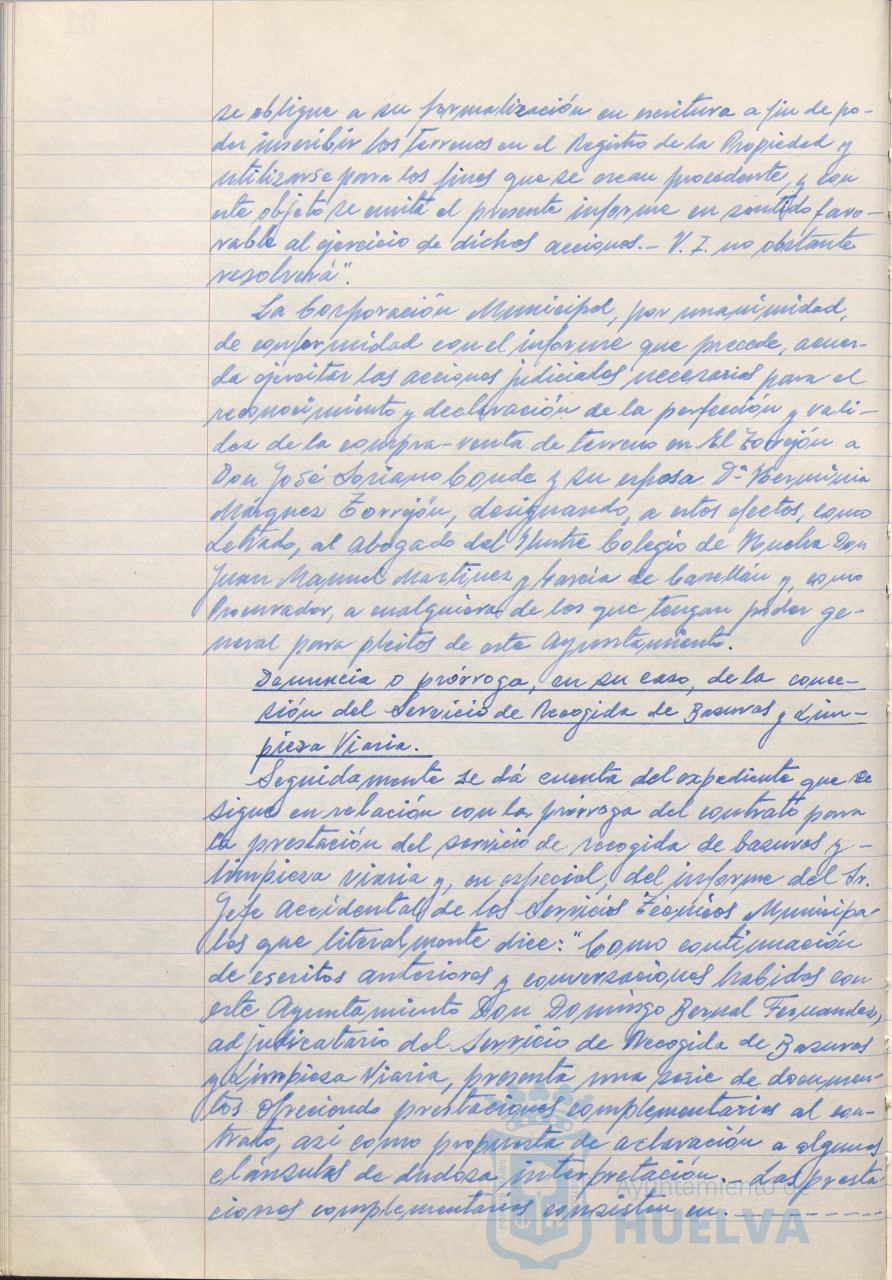 se obligue a su formalización en escritura a fin de po-
der inscribir los terrenos en el Registro de la Propiedad y
utilizarse para los fines que se crean procedente, y con
este objeto se emita el presente informe en sentido favo-
rable al ejercicio de dichas acciones.- V. I. no obstante
resolverá".
La Corporación Municipal, por unanimidad,
de conformidad con el informe que precede, acuer-
da ejercitar las acciones judiciales necesarias para el
reconocimiento y declaración de la perfección y vali-
dez de la compra-venta de terreno en El Torrejón a
Don José Soriano Conde y su esposa Dª Herminia
Márquez Torrejón, designando, a estos efectos, como
Letrado, al Abogado del Iltre Colegio de Huelva Don
Juan Manuel Martinez y García de Castellán y, como
Procurador, a cualquiera de los que tengan poder ge-
neral para pleitos de este Ayuntamiento.
Denuncia o prórroga, en su caso, de la conce-
sión del Servicio de Recogida de Basuras y Lim-
pieza Viaria.
Seguidamente se dá cuenta del expediente que se
sigue en relación con la prórroga del contrato para
la prestación del servicio de recogida de basuras y -
limpieza viaria y, en especial, del informe del Sr.
Jefe Accidental de los Servicios Técnicos Municipa-
les que literalmente dice: "Como continuación
de escritos anteriores y conversaciones habidas con
este Ayuntamiento Don Domingo Bernal Fernandez,
adjudicatario del Servicio de Recogida de Basuras
y Limpieza Viaria, presenta una serie de documen-
tos ofreciendo prestaciones complementarias al con-
trato, así como propuesta de aclaración a algunas
cláusulas de dudosa interpretación.- Las presta-
ciones complementarias consisten en.----------
Ayuntamiento de
HUELVA